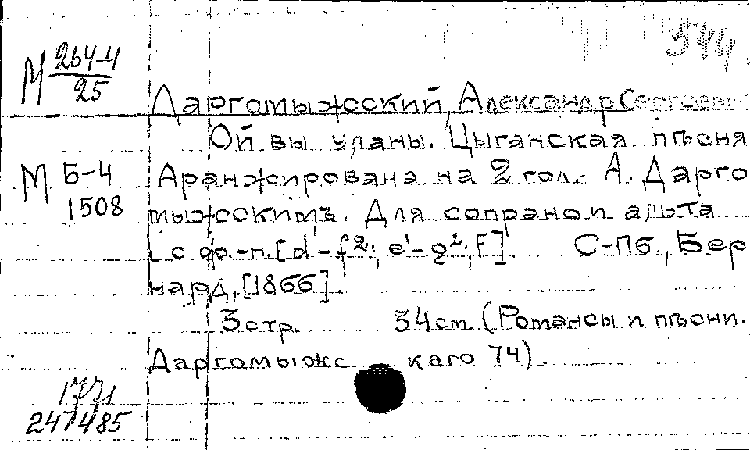 544
М 264-4
25
Даргомыжский, Александр Сергеевич
Ой вы уланы. Цыганская пѣсня
М Б-4
1508
Аранжирована на 2 гол. А. Дарго
мыжскимъ. Для сопрано и альта
с ф.-п. [d-f²; e¹-g²; F]. С-Пб., Бер
нард, [1866].
3 стр. 34 см. (Романсы и пѣсни.
Даргомыжс каго 74).
1771
247485